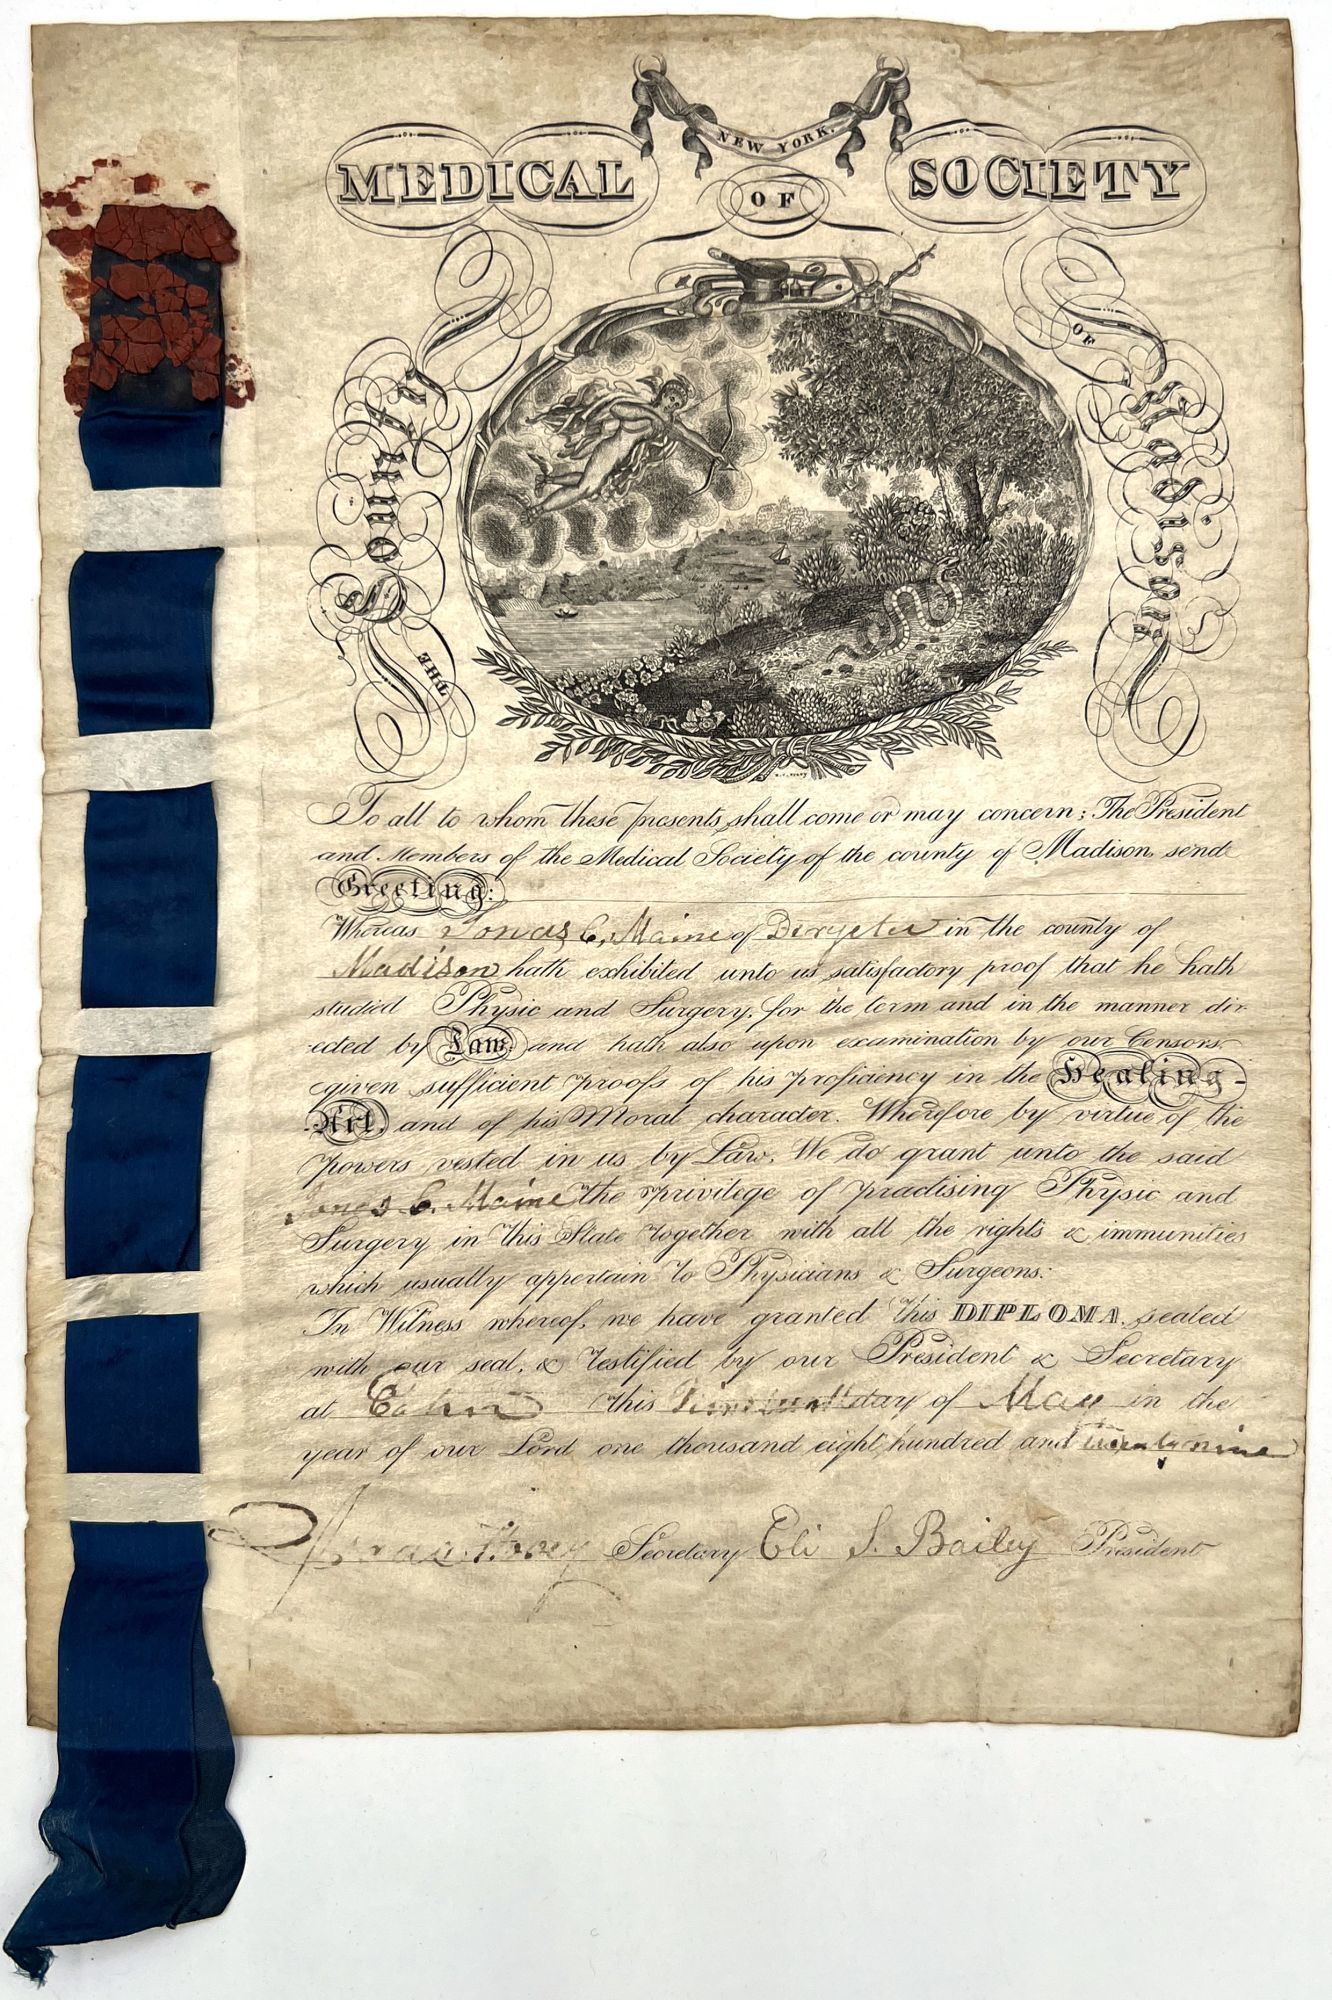 NEW YORK.
MEDICAL OF SOCIETY
THE County
OF Madison
To all to whom these presents shall come or may concern; The President
and Members of the Medical Society of the county of Madison, send
Greeting:
Whereas Jonas C. Maine of in the county of
Madison hath exhibited unto us satisfactory proof that he hath
studied Physic and Surgery, for the term and in the manner dir-
ected by Law, and hath also upon examination by our Censors,
given sufficient proofs of his proficiency in the Healing-
Art, and of his Moral character. Wherefore by virtue of the
powers vested in us by Law, We do grant unto the said
Jonas C. Maine the privilege of practising Physic and
Surgery in this State together with all the rights & immunities
which usually appertain to Physicians & Surgeons:
In Witness whereof, we have granted this DIPLOMA, sealed
with our seal, & testified by our President & Secretary
at Eaton this day of May in the
year of our Lord one thousand eight hundred and twenty nine
Secretary Eli S. Bailey President